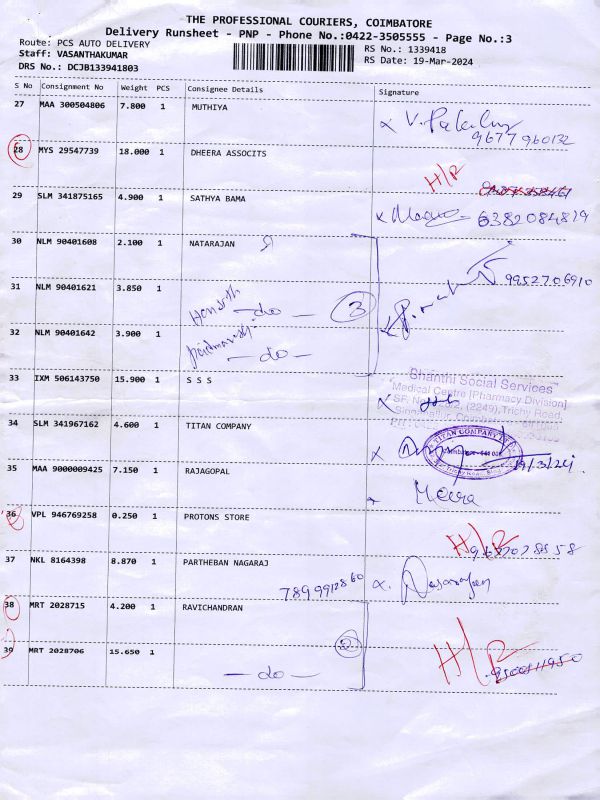 THE PROFESSIONAL COURIERS, COIMBATORE
Delivery Runsheet - PNP - Phone No.:0422-3505555 - Page No.:3
Route: PCS AUTO DELIVERY
RS No.: 1339418
Staff: VASANTHAKUMAR
RS Date: 19-Mar-2024
DRS No.: DCJB133941803
S No Consignment No Weight PCS Consignee Details Signature
27 MAA 300504806 7.800 1 MUTHIYA
9677960132
28 MYS 29547739 18.000 1 DHEERA ASSOCITS
H/R
29 SLM 341875165 4.900 1 SATHYA BAMA
6382084819
30 NLM 90401608 2.100 1 NATARAJAN
9952706910
31 NLM 90401621 3.850 1
— do — 3
32 NLM 90401642 3.900 1
— do —
33 IXM 506143750 15.900 1 S S S
Shanthi Social Services
Medical Centre [Pharmacy Division]
(2249), Trichy Road,
34 SLM 341967162 4.600 1 TITAN COMPANY
TITAN COMPANY
19/3/24
35 MAA 9000009425 7.150 1 RAJAGOPAL
Meera
36 VPL 946769258 0.250 1 PROTONS STORE
H/R
37 NKL 8164398 8.870 1 PARTHEBAN NAGARAJ
7899912860
38 MRT 2028715 4.200 1 RAVICHANDRAN
2
H/R
39 MRT 2028706 15.650 1
— do —